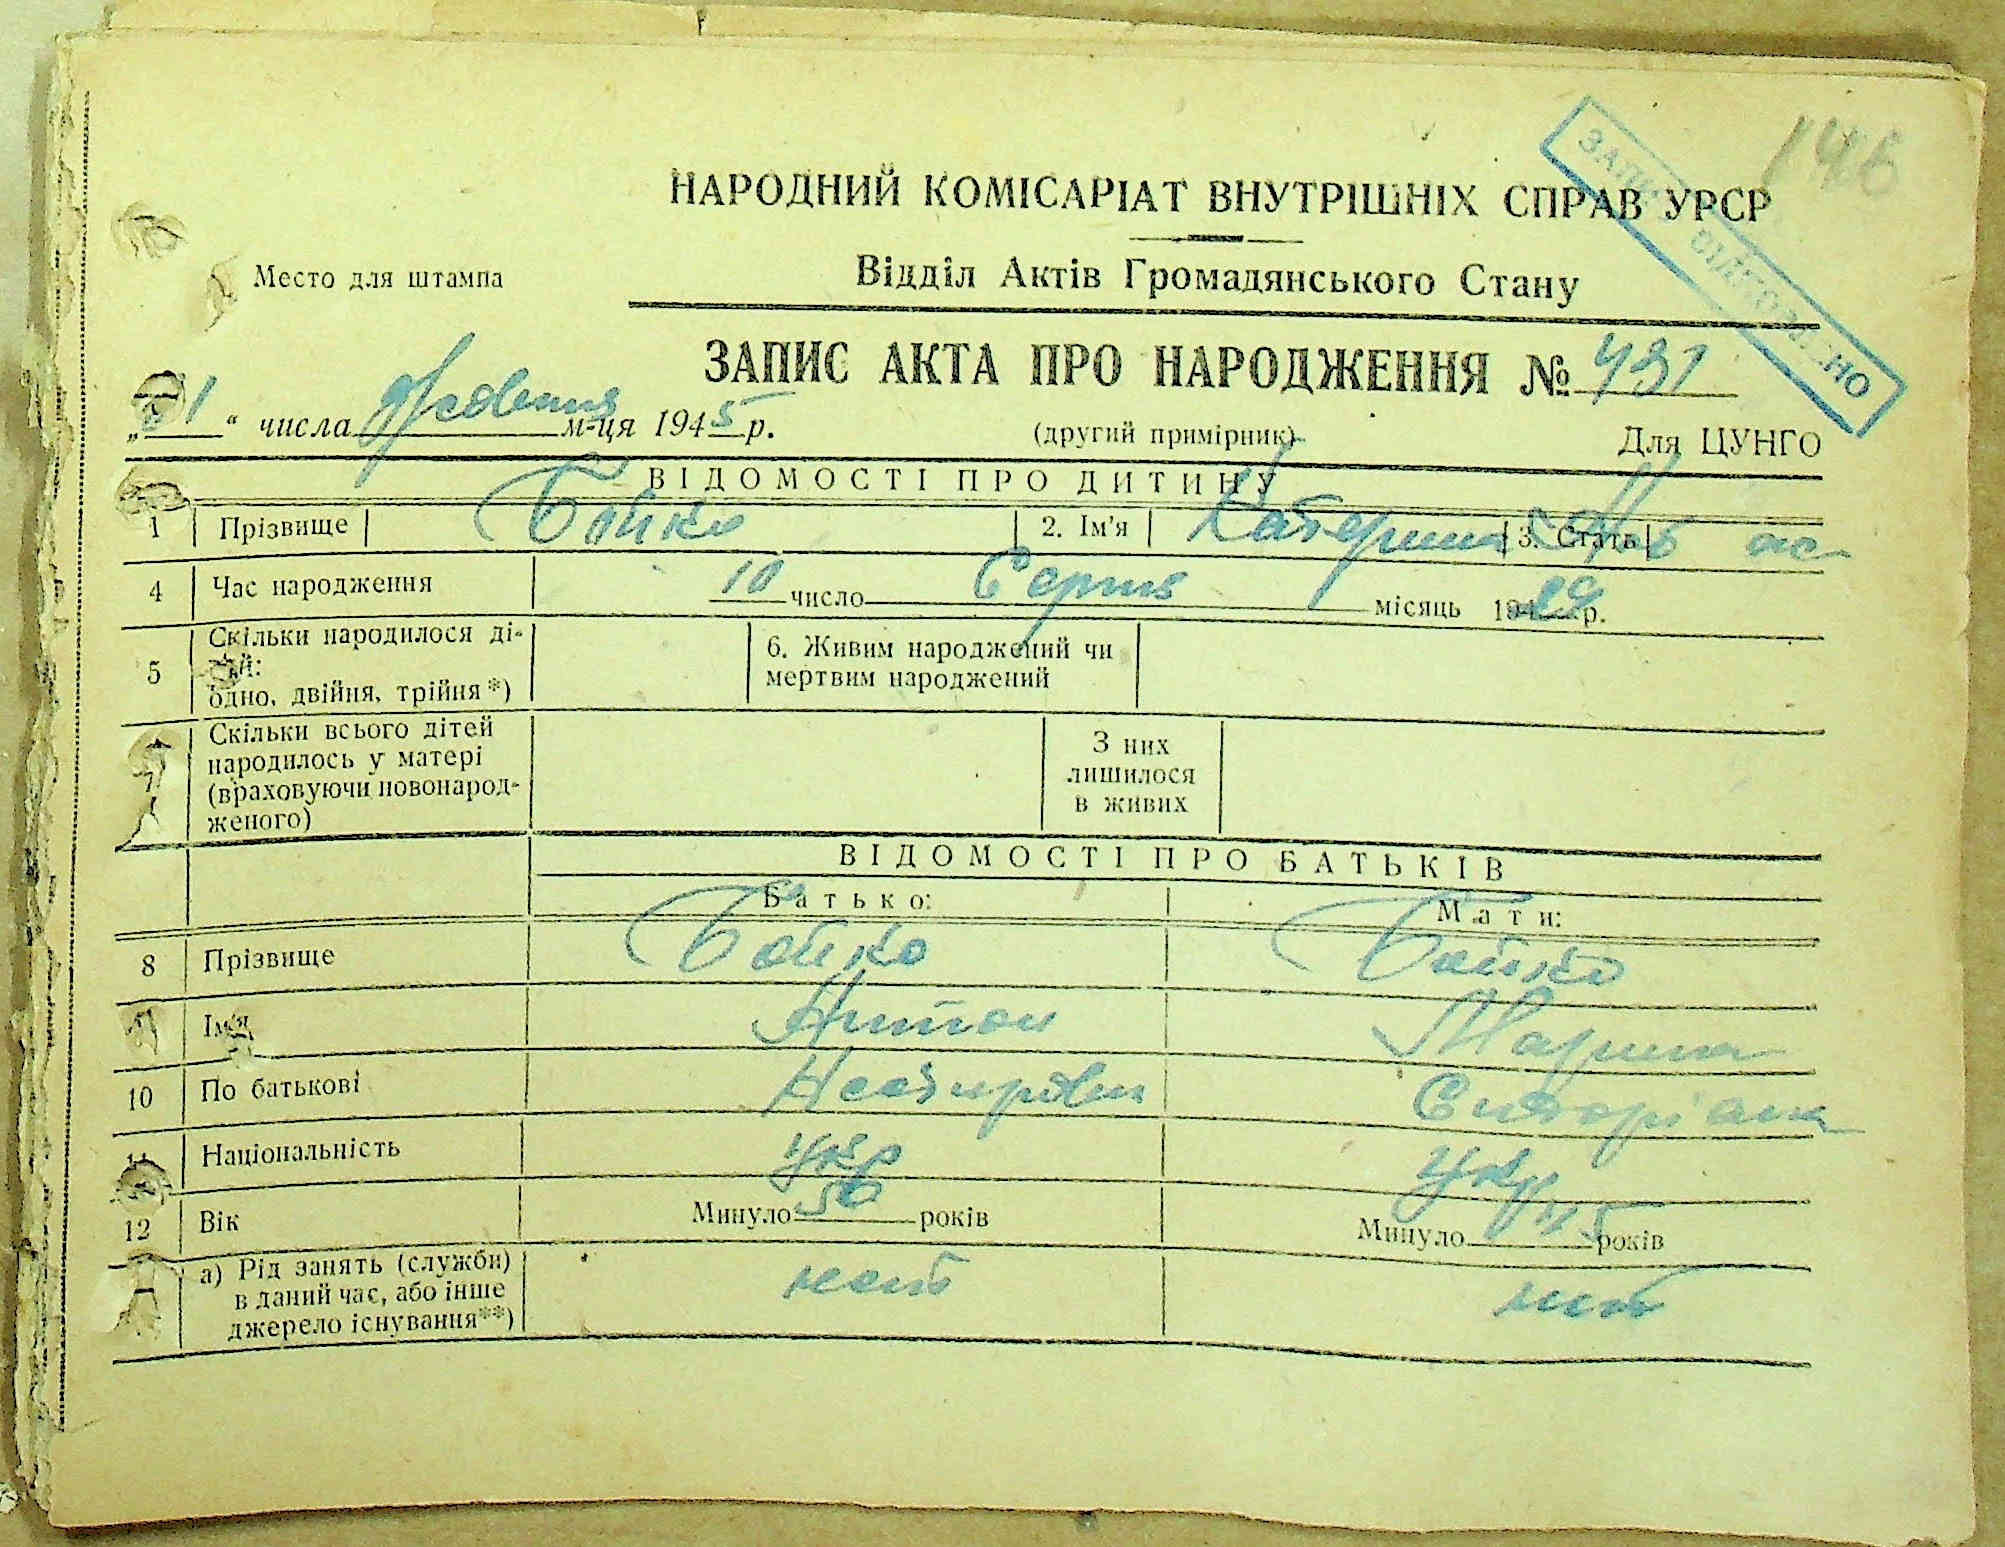 146
НАРОДНИЙ КОМІСАРІАТ ВНУТРІШНІХ СПРАВ УРСР
Место для штампа
Відділ Актів Громадянського Стану
ЗАПИС ВІДНОВЛЕНО
ЗАПИС АКТА ПРО НАРОДЖЕННЯ № 431
„31“ числа Жовтня м-ця 1945 р.
(другий примірник)
Для ЦУНГО
ВІДОМОСТІ ПРО ДИТИНУ
1 Прізвище Бойко 2. Ім'я Катерина 3. Стать
4 Час народження 10 число Серпня місяць 1929 р.
5 Скільки народилося дітей: одно, двійня, трійня*) 6. Живим народжений чи мертвим народжений
7 Скільки всього дітей народилось у матері (враховуючи новонародженого) З них лишилося в живих
ВІДОМОСТІ ПРО БАТЬКІВ
Батько: Мати:
8 Прізвище Бойко Бойко
9 Ім'я Антон Марина
10 По батькові
11 Національність укр укр
12 Вік Минуло 50 років Минуло 45 років
а) Рід занять (служби) в даний час, або інше джерело існування**)